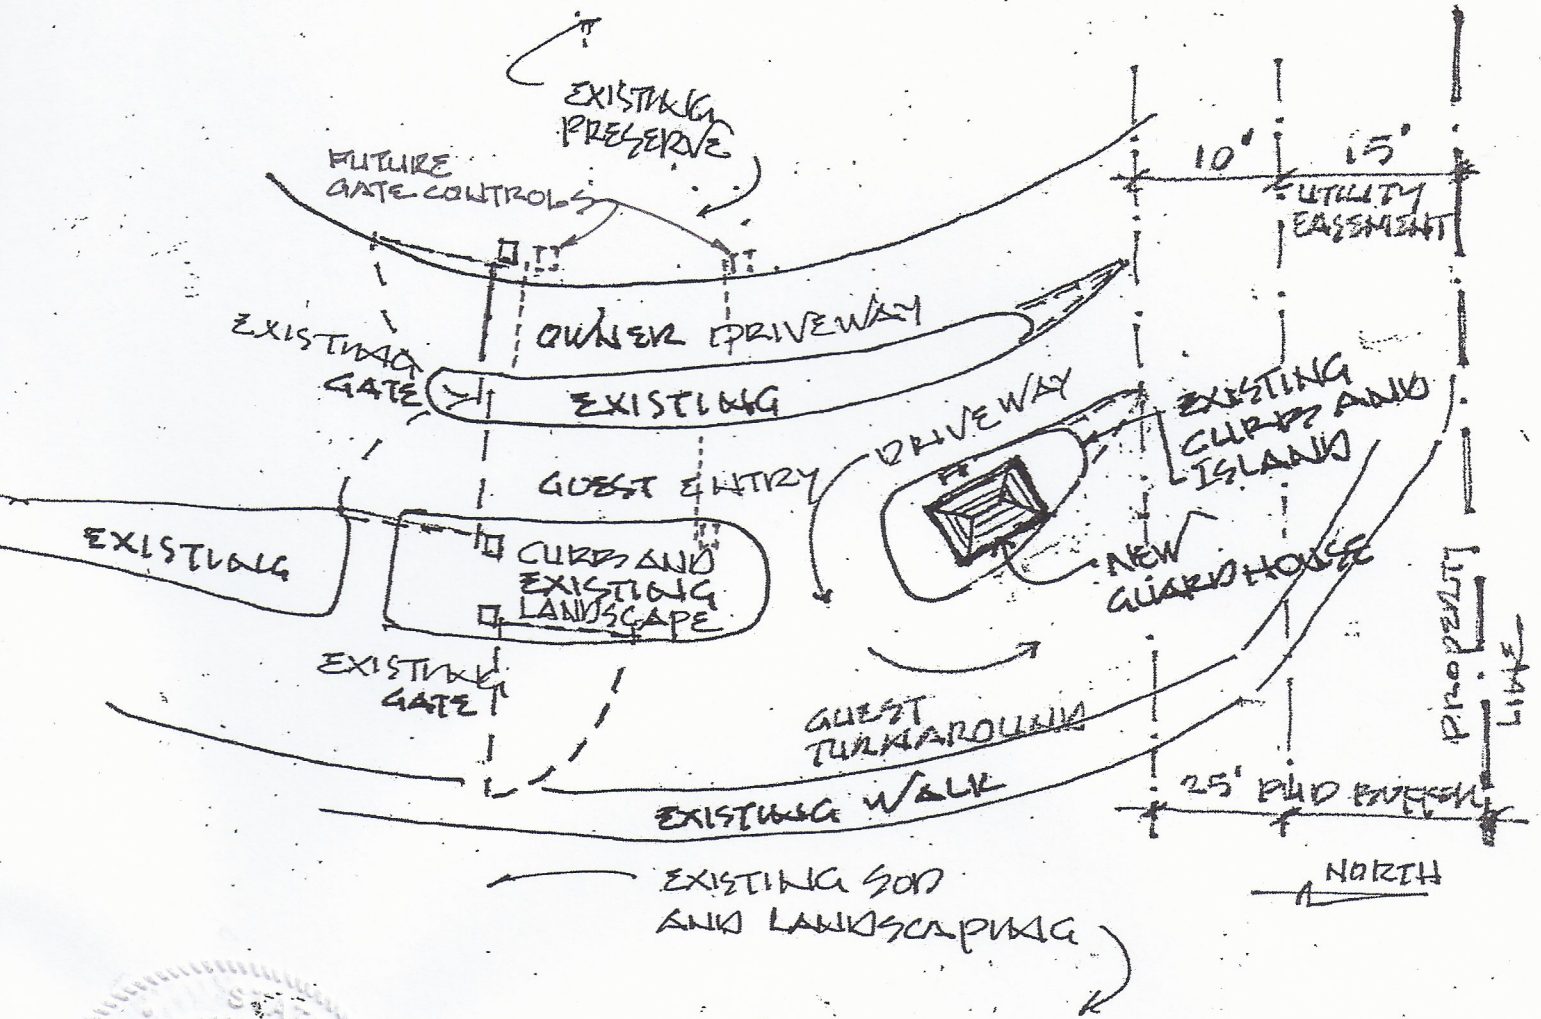 EXISTING
PRESERVE
FUTURE
GATE CONTROLS
10'
15'
UTILITY
EASEMENT
EXISTING
GATE
OWNER DRIVEWAY
EXISTING
DRIVEWAY
EXISTING
CURBS AND
ISLAND
GUEST ENTRY
EXISTING
CURBS AND
EXISTING
LANDSCAPE
NEW
GUARDHOUSE
PROPERTY
LINE
EXISTING
GATE
GUEST
TURNAROUND
25' PUD BUFFER
EXISTING WALK
NORTH
EXISTING SOD
AND LANDSCAPING